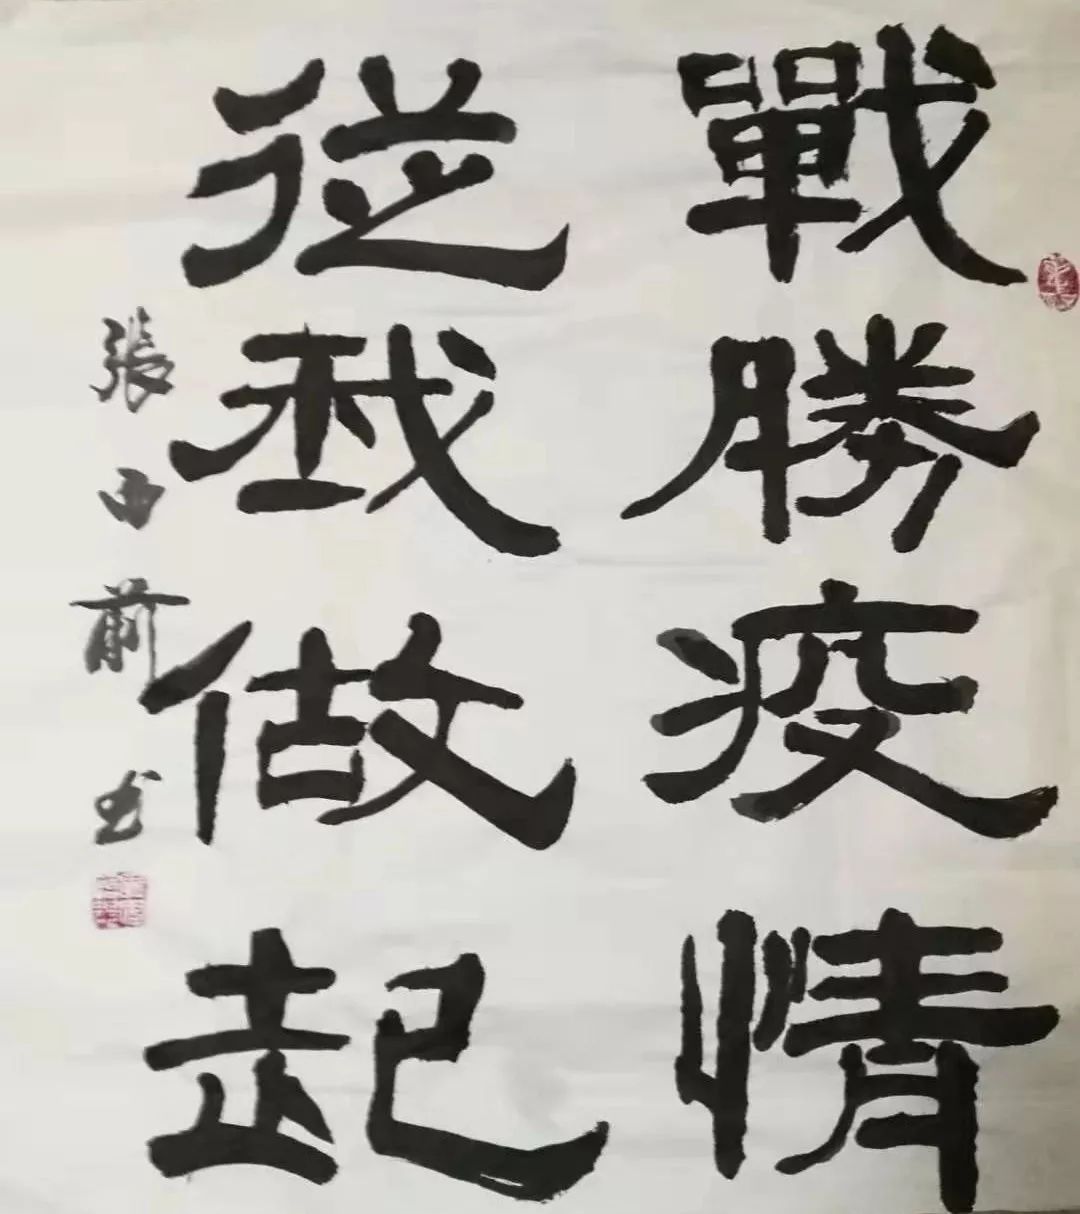 戰勝疫情
從我做起
張西前书